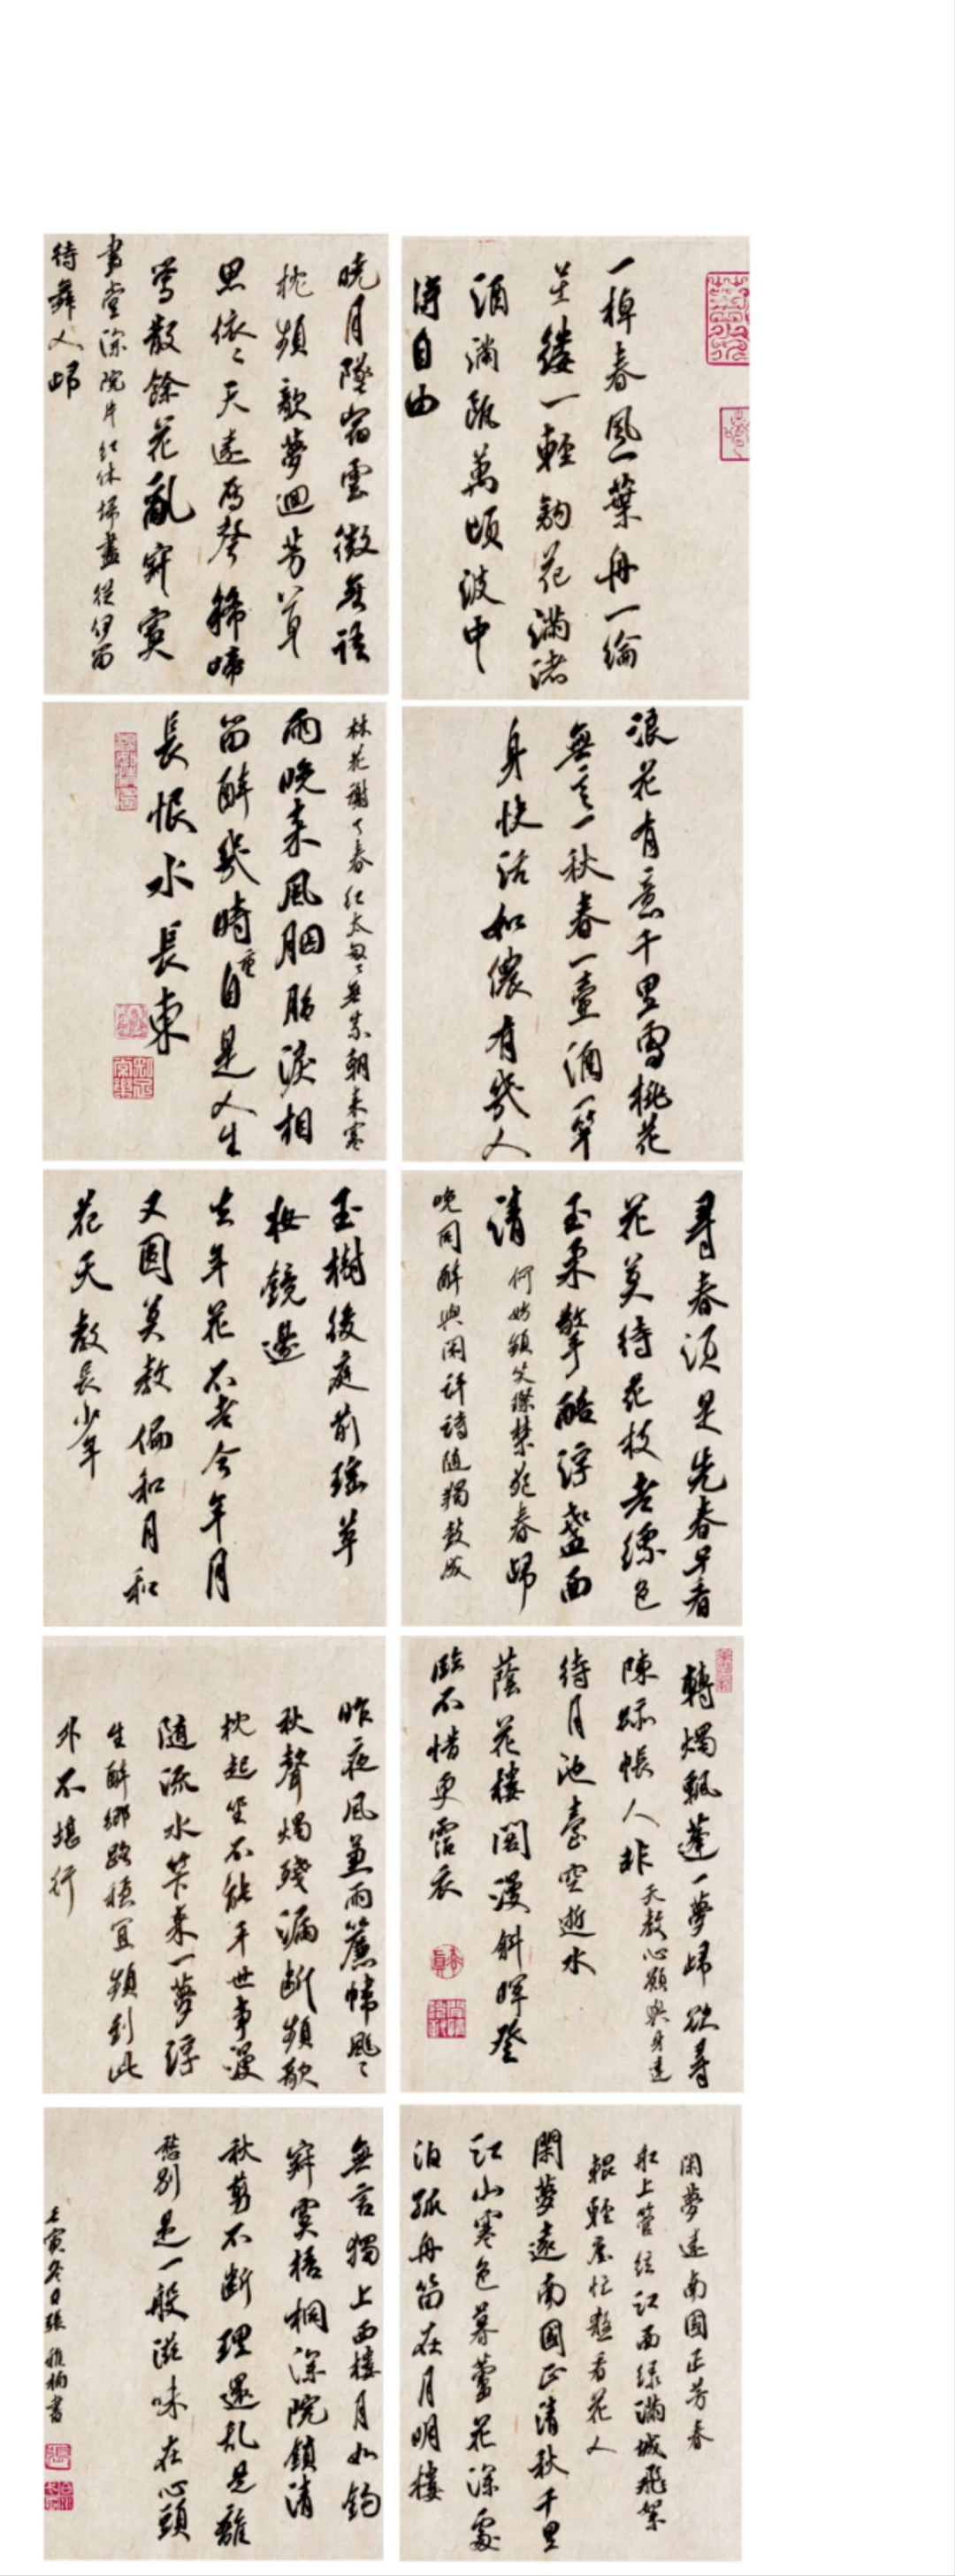 一棹春風一葉舟一綸
茧縷一輕鉤花滿渚
酒滿甌萬頃波中
得自由
曉月墜宿雲微無語
枕頻欹夢迴芳草
思依〻天遠雁聲稀啼
鶯散餘花亂寂寞
畫堂深院片紅休掃盡從伊留
待舞人歸
浪花有意千里雪桃花
無言一秋春一壺酒一竿
身快活如儂有幾人
林花謝了春紅太匆〻無奈朝來寒
雨晚來風胭脂淚相
留醉幾時重自是人生
長恨水長東
尋春須是先春早看
花莫待花枝老縹色
玉柔擎醅浮盞面
清何妨頻笑粲禁苑春歸
晚同醉與閑評詩隨羯鼓成
玉樹後庭前瑤草
妝鏡邊
去年花不老今年月
又圓莫教偏和月和
花天教長少年
轉燭飄蓬一夢歸欲尋
陳跡悵人非天教心願與身違
待月池臺空逝水
蔭花樓閣漫斜暉登
臨不惜更霑衣
昨夜風兼雨簾幃颯〻
秋聲燭殘漏斷頻欹
枕起坐不能平世事漫
隨流水算來一夢浮
生醉鄉路穩宜頻到此
外不堪行
閑夢遠南國正芳春
船上管弦江面綠滿城飛絮
輥輕塵忙煞看花人
閑夢遠南國正清秋千里
江山寒色暮蘆花深處
泊孤舟笛在月明樓
無言獨上西樓月如鉤
寂寞梧桐深院鎖清
秋剪不斷理還亂是離
愁別是一般滋味在心頭
壬寅冬日張雅楠書